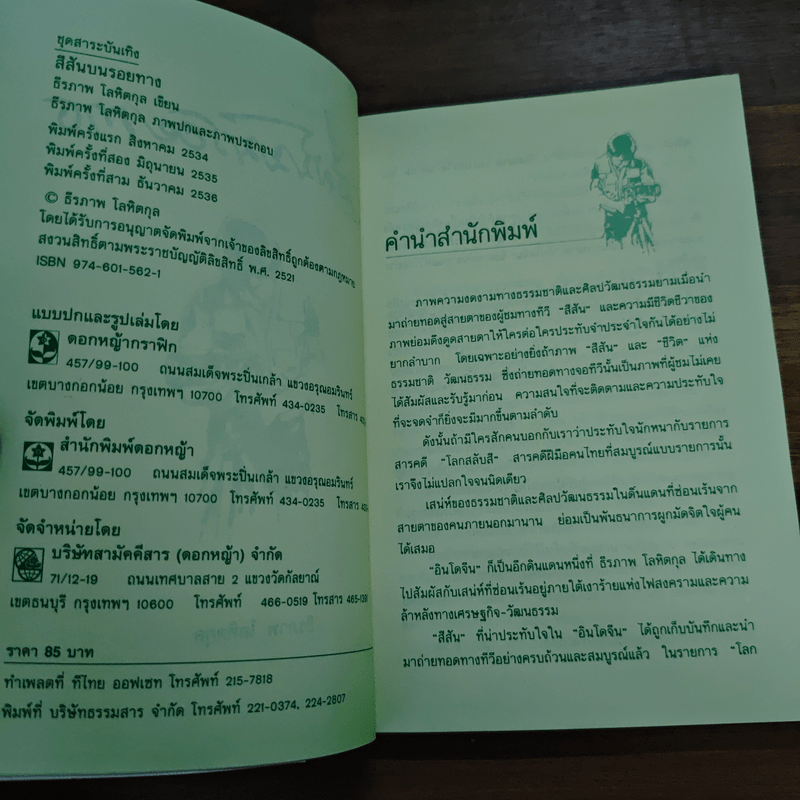 ชุดสาระบันเทิง
สีสันบนรอยทาง
ธีรภาพ โลหิตกุล เขียน
ธีรภาพ โลหิตกุล ภาพปกและภาพประกอบ
พิมพ์ครั้งแรก สิงหาคม 2534
พิมพ์ครั้งที่สอง มิถุนายน 2535
พิมพ์ครั้งที่สาม ธันวาคม 2536
© ธีรภาพ โลหิตกุล
โดยได้รับการอนุญาตจัดพิมพ์จากเจ้าของลิขสิทธิ์ถูกต้องตามกฎหมาย
สงวนสิทธิ์ตามพระราชบัญญัติลิขสิทธิ์ พ.ศ. 2521
ISBN 974-601-562-1
แบบปกและรูปเล่มโดย
ดอกหญ้ากราฟิก
457/99-100 ถนนสมเด็จพระปิ่นเกล้า แขวงอรุณอมรินทร์
เขตบางกอกน้อย กรุงเทพฯ 10700 โทรศัพท์ 434-0235 โทรสาร
จัดพิมพ์โดย
สำนักพิมพ์ดอกหญ้า
457/99-100 ถนนสมเด็จพระปิ่นเกล้า แขวงอรุณอมรินทร์
เขตบางกอกน้อย กรุงเทพฯ 10700 โทรศัพท์ 434-0235 โทรสาร
จัดจำหน่ายโดย
บริษัทสามัคคีสาร (ดอกหญ้า) จำกัด
71/12-19 ถนนเทศบาลสาย 2 แขวงวัดกัลยาณ์
เขตธนบุรี กรุงเทพฯ 10600 โทรศัพท์ 466-0519 โทรสาร
ราคา 85 บาท
ทำเพลตที่ ทีไทย ออฟเซท โทรศัพท์ 215-7818
พิมพ์ที่ บริษัทธรรมสาร จำกัด โทรศัพท์ 221-0374, 224-2807
คำนำสำนักพิมพ์
ภาพความงดงามทางธรรมชาติและศิลปวัฒนธรรมยามเมื่อนำ
มาถ่ายทอดสู่สายตาของผู้ชมทางทีวี "สีสัน" และความมีชีวิตชีวาของ
ภาพย่อมดึงดูดสายตาให้ใครต่อใครประทับจำประจำใจกันได้อย่างไม่
ยากลำบาก โดยเฉพาะอย่างยิ่งถ้าภาพ "สีสัน" และ "ชีวิต" แห่ง
ธรรมชาติ วัฒนธรรม ซึ่งถ่ายทอดทางจอทีวีนั้นเป็นภาพที่ผู้ชมไม่เคย
ได้สัมผัสและรับรู้มาก่อน ความสนใจที่จะติดตามและความประทับใจ
ที่จะจดจำก็ยิ่งจะมีมากขึ้นตามลำดับ
ดังนั้นถ้ามีใครสักคนบอกกับเราว่าประทับใจนักหนากับรายการ
สารคดี "โลกสลับสี" สารคดีฝีมือคนไทยที่สมบูรณ์แบบรายการนั้น
เราจึงไม่แปลกใจจนนิดเดียว
เสน่ห์ของธรรมชาติและศิลปวัฒนธรรมในดินแดนที่ซ่อนเร้นจาก
สายตาของคนภายนอกมานาน ย่อมเป็นพันธนาการผูกมัดจิตใจผู้คน
ได้เสมอ
"อินโดจีน" ก็เป็นอีกดินแดนหนึ่งที่ ธีรภาพ โลหิตกุล ได้เดินทาง
ไปสัมผัสกับเสน่ห์ที่ซ่อนเร้นอยู่ภายใต้เงาร้ายแห่งไฟสงครามและความ
ล้าหลังทางเศรษฐกิจ-วัฒนธรรม
"สีสัน" ที่น่าประทับใจใน "อินโดจีน" ได้ถูกเก็บบันทึกและนำ
มาถ่ายทอดทางทีวีอย่างครบถ้วนและสมบูรณ์แล้ว ในรายการ "โลก